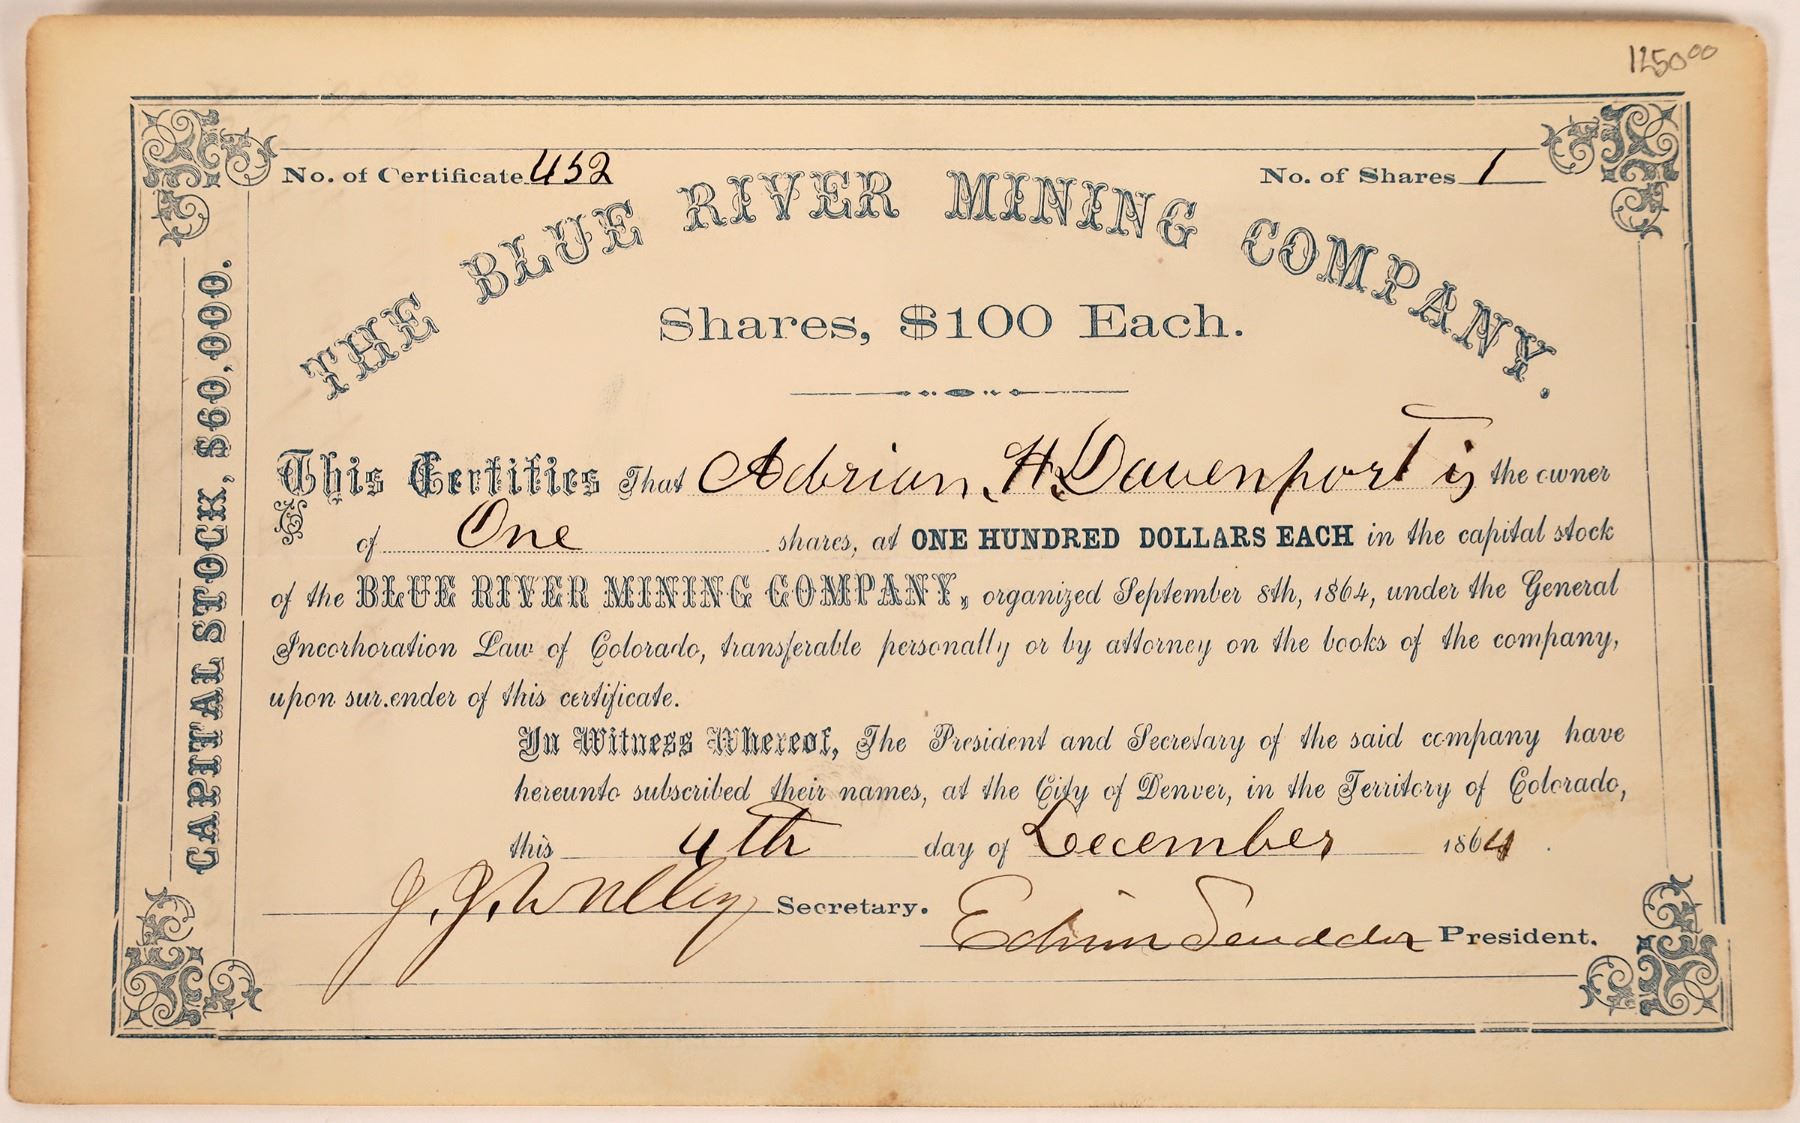 1250⁰⁰
No. of Certificate 452
No. of Shares 1
THE BLUE RIVER MINING COMPANY.
Shares, $100 Each.
CAPITAL STOCK, $60,000.
This Certifies That Adrian H. Davenport is the owner
of One shares, at ONE HUNDRED DOLLARS EACH in the capital stock
of the BLUE RIVER MINING COMPANY, organized September 8th, 1864, under the General
Incorhoration Law of Colorado, transferable personally or by attorney on the books of the company,
upon sur.ender of this certificate.
In Witness Whereof, The President and Secretary of the said company have
hereunto subscribed their names, at the City of Denver, in the Territory of Colorado,
this 4th day of December 1864.
J. J. Secretary.
Edwin Scudder President.